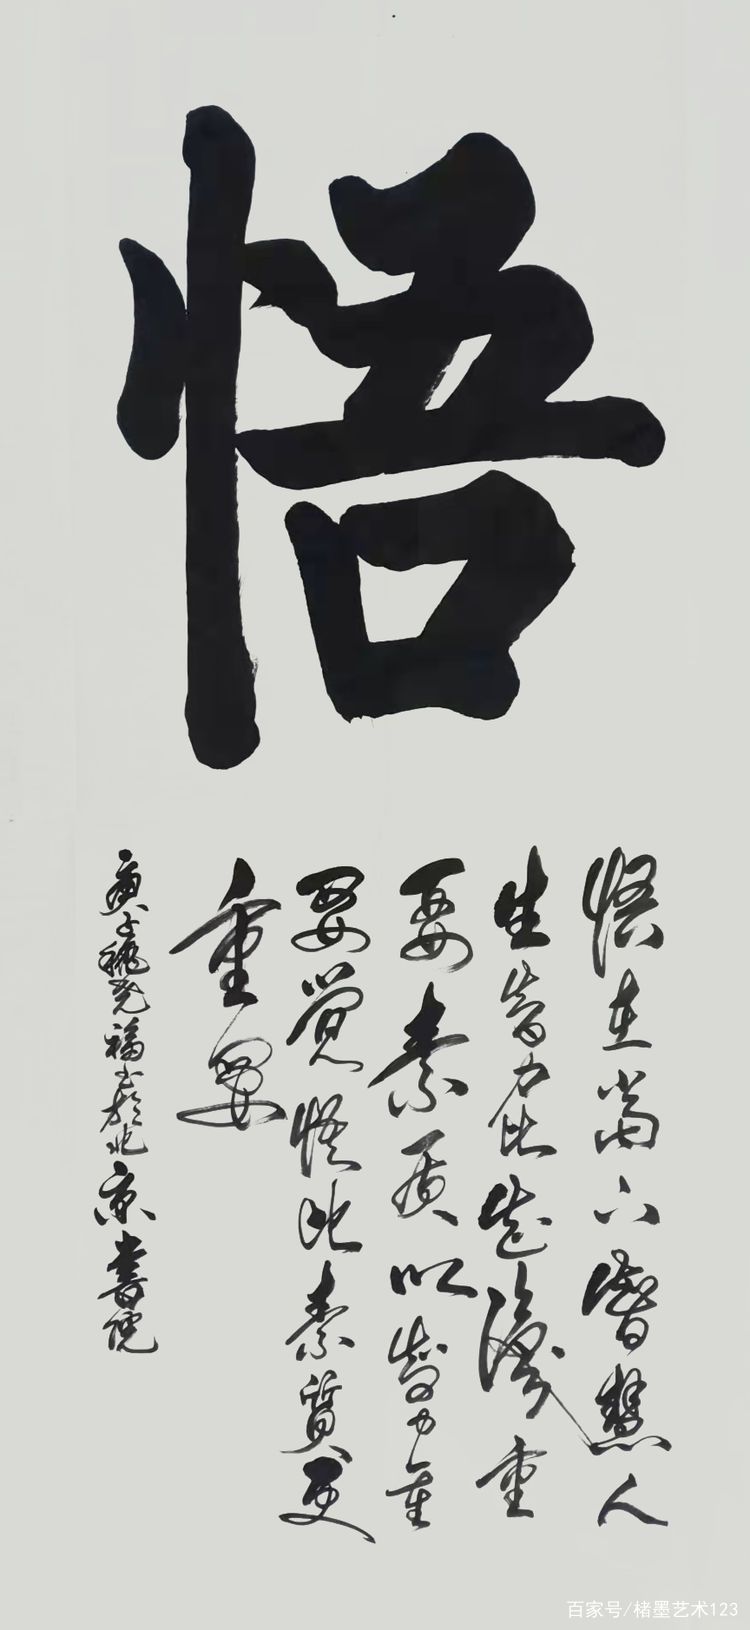 悟
悟在当下智慧人
生智力比知识重
要素质比智力重
要觉悟比素质更
重要
庚子秋尧福书于北京書院
百家号/楮墨艺术123